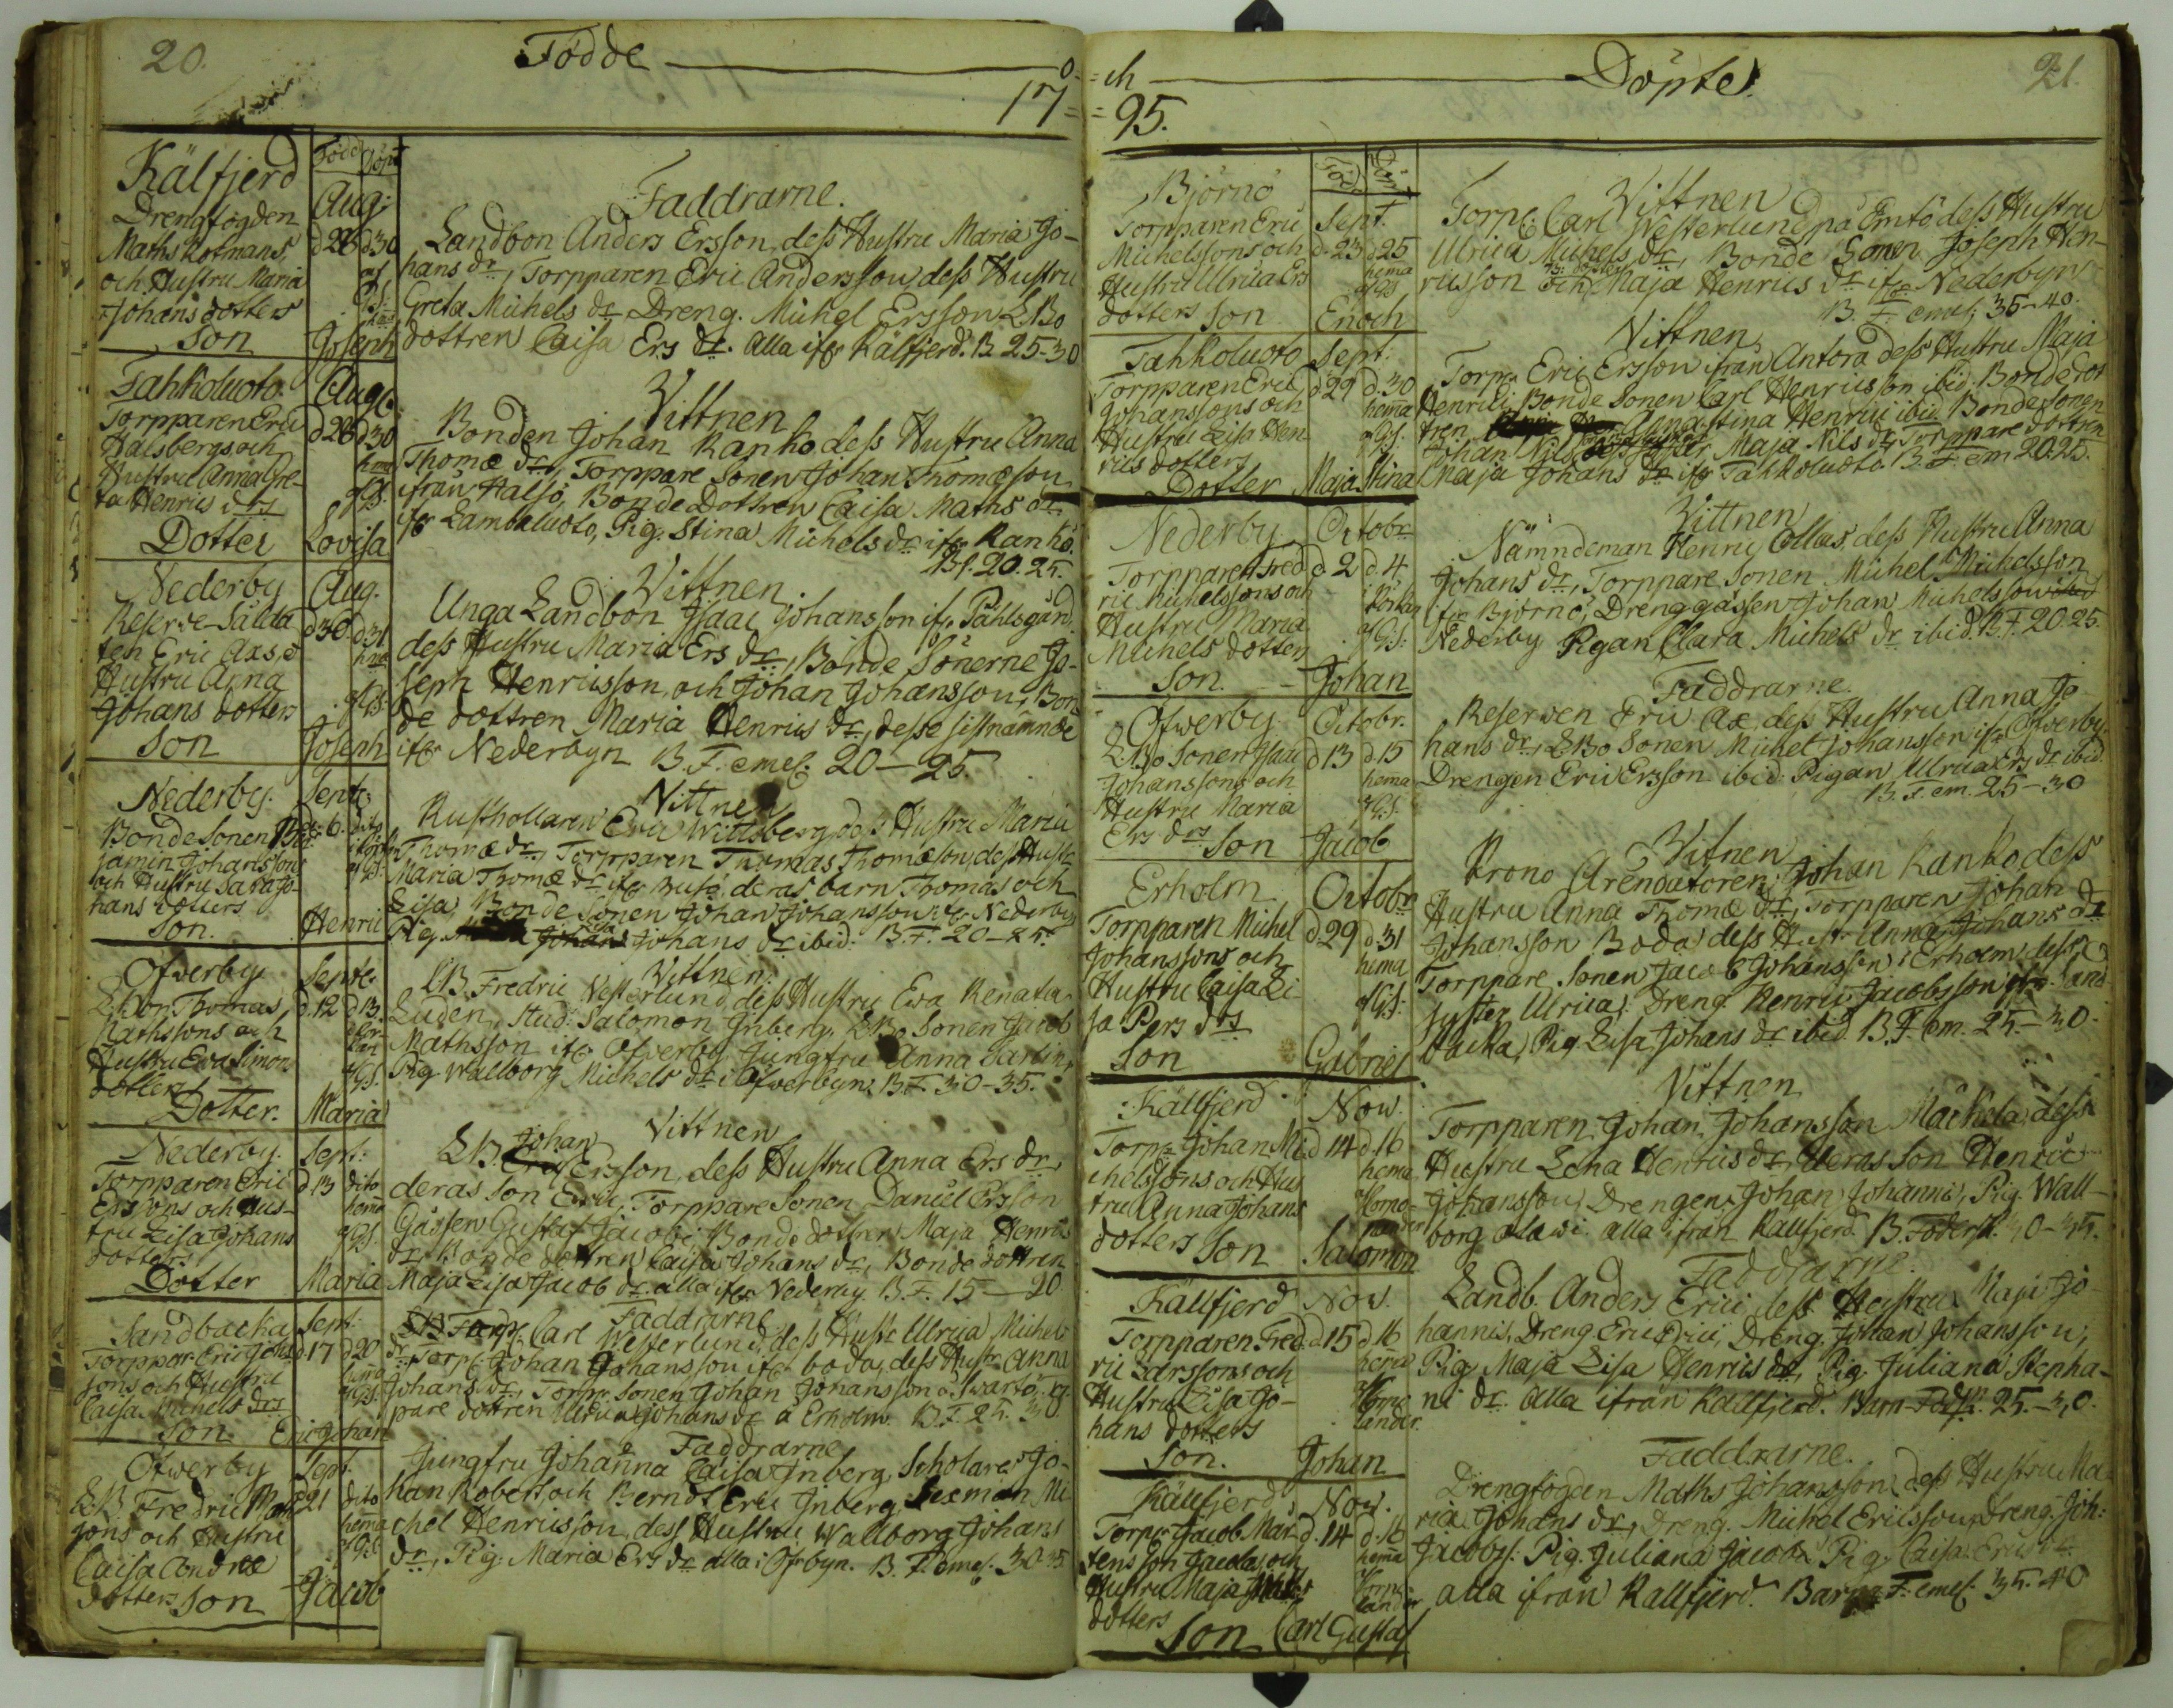 20.
Födde
17
Kälfjerd
Född
Döpt
Drengfogden
Aug:
Maths Rotmans,
d 28 d 30
och Hustru Maria
Johans dotters
Son
Joseph
Faddrarne.
Landbon Anders Ersson, dess Hustru Maria Jo-
hans dr, Torpparen Eric Andersson, dess Hustru
Greta Michels dr Dreng. Michel Ersson LBo
dottren Caisa Ers dr. alla ifr Kälfjerd. B. 25-30
Tahkoluoto
Aug.
Torpparen Eric
d 28 d 30
Halsbergs och
Hustru Anna Gre-
ta Henrics drs
Dotter
Lovisa
Vittnen
Bonden Johan Kanko dess Hustru Anna
Thomæ dr, Torppare Sonen Johan Thomæson
ifrån Halsö, Bonde Dottren Caisa Maths dr
ifr Lambaluoto, Pig. Stina Michels dr ifr Kanko.
Bf. 20. 25.
Nederby
Aug.
Reserve-Sålda
d 30 d 31
ten Eric Axs, o
Hustru Anna
Johans dotters
Son
Joseph
Vittnen
Unga Landbon Isaac Johansson ifr Påhlsgård,
dess Hustru Maria Ers dr, Bonde Sönerne Jo-
seph Henricsson, och Johan Johansson, Bon
de dottren Maria Henrics dr, desse sistnämnde
ifr Nederbyn B. F. emel. 20-25.
Nederby.
Sept.
Bonde Sonen Ben
d. 6. dito
jamin Johanssons
och Hustru Sara Jo-
hans dotters
Son.
Henric
Vittnen
Rusthollaren Eric Wittsberg, dess Hustru Maria
Thomæ dr, Torpparen Thomas Thomæson, dess Hust
Maria Thomæ dr ifr Busö deras barn Thomas och
Lisa, Bonde Sonen Johan Johansson ifr Nederby
Pig. Johans dr ibid: B. F. 20-25.
Ofwerby
Septe.
LBon Thomas
d. 12 d 13.
Mathssons och
Hustru Eva Simons
dotters
Dotter.
Maria
Vittnen
LB Fredric Westerlund, dess Hustru Eva Renata
Luden, Stud: Salomon Inberg, LBo Sonen Jacob
Mathsson ifr Ofwerby Jungfru Anna
Pig Wallborg Michels dr i Ofwerbyn. B.F. 30-35.
Nederby.
Sept:
Torpparen Eric
d 13 dito
Erssons och Hus-
tru Lisa Johans
dotters
Dotter
Maria
Vittnen
LB. Johan Ersson, dess Hustru Anna Ers dr,
deras Son Eric, Torppare Sonen Daniel Ersson
Gässen Gustaf Jacobi Bonde dottren Maja Henrics
dr, Bonde dottren Caisa Johans dr, Bonde dottren
Maja Lisa Jacob dr alla ifr Nederby. B. F. 15-20
Sandbacka
Sept:
Torppar. Eric Johs
d 17 d 20
sons och Hustru
Caisa Michels drs
Son.
Eric Johan
Faddrarne
Carl Westerlund, dess Hustr Ulrica Michels
dr Torp. Johan Johansson ifr boda, dess Hustr Anna
Johans dr, Torp Sonen Johan Johansson å Swartö,
pare dottren Ulrica Johans dr å Erholm. B. F. 25. 30.
Ofwerby
Sept.
LB. Fredric Maths
d 21 dito
sons och Hustru
Caisa Andræ
dotters Son
Jacob
Faddrarne
Jungfru Johanna Caisa Inberg, Scholares Jo-
han Robert och Berndt Eric Inberg, Sexman Mi
chel Henricsson, dess Hustru Wallborg Johans
dr, Pig: Maria Ers dr alla i Ofbyn. B. F. emel. 30-35
och
95.
Döpte.
21.
Björnö
Född
Döpt
Torpparen Eric
Sept.
Michelssons och
d. 23 d 25
hema
Hustru Ulrica Ers
dotters Son
Enoch
Vittnen
Torp: Carl Westerlund på Emtö, dess Hustru
Ulrica Michels dr, Bonde Sonen Joseph Hen-
ricsson och Maja Henrics dr ifr Nederbyn
B. F. emel. 35-40.
Tahkoluoto
Sept.
Torpparen Eric
d 29 d. 30
Johanssons och
hema
Hustru Lisa Hen
rics dotters
Dotter
Maja Stina
Vittnen
Torp. Eric Ersson ifrån Antora dess Hustru Maja
Henrici Bonde Sonen Carl Henricsson ibid. Bonde Dot
tren Anna Stina Henric ibid Bonde Sonen
Johan Nils Maja Nils dr Torppare dottren
Maja Johans dr ifr Tahkoluoto. B. F. em 20.25.
Nederby
Octobr
Torpparen Fred
d 2 d. 4
ric Michelssons och
Hustru Maria
Michels dotters
Son.
Johan
Vittnen
Nämndeman Henric Collas, dess Hustru Anna
Johans dr, Torppare Sonen Michel Michelsson
ifr Björnö, Dreng gåssen Johan Michelsson
Nederby Pigan Clara Michels dr ibid. B. F. 20.25.
Ofwerby.
Octobr.
LBo Sonen Isaac
d 13 d. 15
Johanssons och
hema
Hustru Maria
Ers drs Son
Jacob
Faddrarne.
Reserven Eric Ax, dess Hustru Anna Jo
hans dr, LBo Sonen Michel Johansson ifr Ofwerby.
Drengen Eric Ersson ibid: Pigan Ulrica Ers dr ibid.
B. F. em. 25-30
Erholm
Octobr
Torpparen Michel
d 29 d 31
Johanssons och
hema
Hustru Caisa Li-
sa Pers drs
Son
Gabriel
Vitnen
Krono Arendatoren Johan Kanko dess
Hustru Anna Thomæ dr, Torpparen Johan
Johansson Boda dess Hustr Anna Johans dr
Torppare Sonen Jacob Johansson i Erholm dess
syster Ulrica. Dreng Henric Jacobsson ifr. Sand
backa, Pig. Lisa Johans dr ibid. B. F. em. 25-30.
Källfjerd
Now.
Torp. Johan Mi
d 14 d 16
chelssons och Hus
hema
tru Anna Johans
dotters Son
Salomon
Vittnen
Torpparen Johan Johansson Mäkelä, dess
Hustru Lena Henrics dr, deras Son Henric
Johansson Drengen Johan Johannis, Pig. Wall-
borg alla ifrån Kallfjerd. B. Föders. 30-35.
Källfjerd
Now.
Torpparen Fred
d 15 d 16
ric Larssons och
hema
Hustru Lisa Jo-
hans dotters
Son.
Johan
Faddrarne.
Landb. Anders Erici, dess Hustru Maja Jo
hannis, Dreng Eric Erici, Dreng. Johan Johansson,
Pig Maja Lisa Henrics dr, Pig. Juliana Stepha-
ni dr. alla ifrån Kallfjerd. Barn. 25.-30.
Källfjerd
Now.
Torp. Jacob Mår
d. 14 d. 16
tensson Jacolas och
hema
Hustru Maja
dotters
Son
Carl Gustaf
Faddrarne.
Drengfogden Maths Johansson dess Hustru Ma
ria Johans dr, Dreng. Michel Ericsson, Dreng: Joh:
Jacobs: Pig. Juliana Jacobs Pig. Caisa Erici
alla ifrån Kallfjerd. Barn F: emel. 35. 40